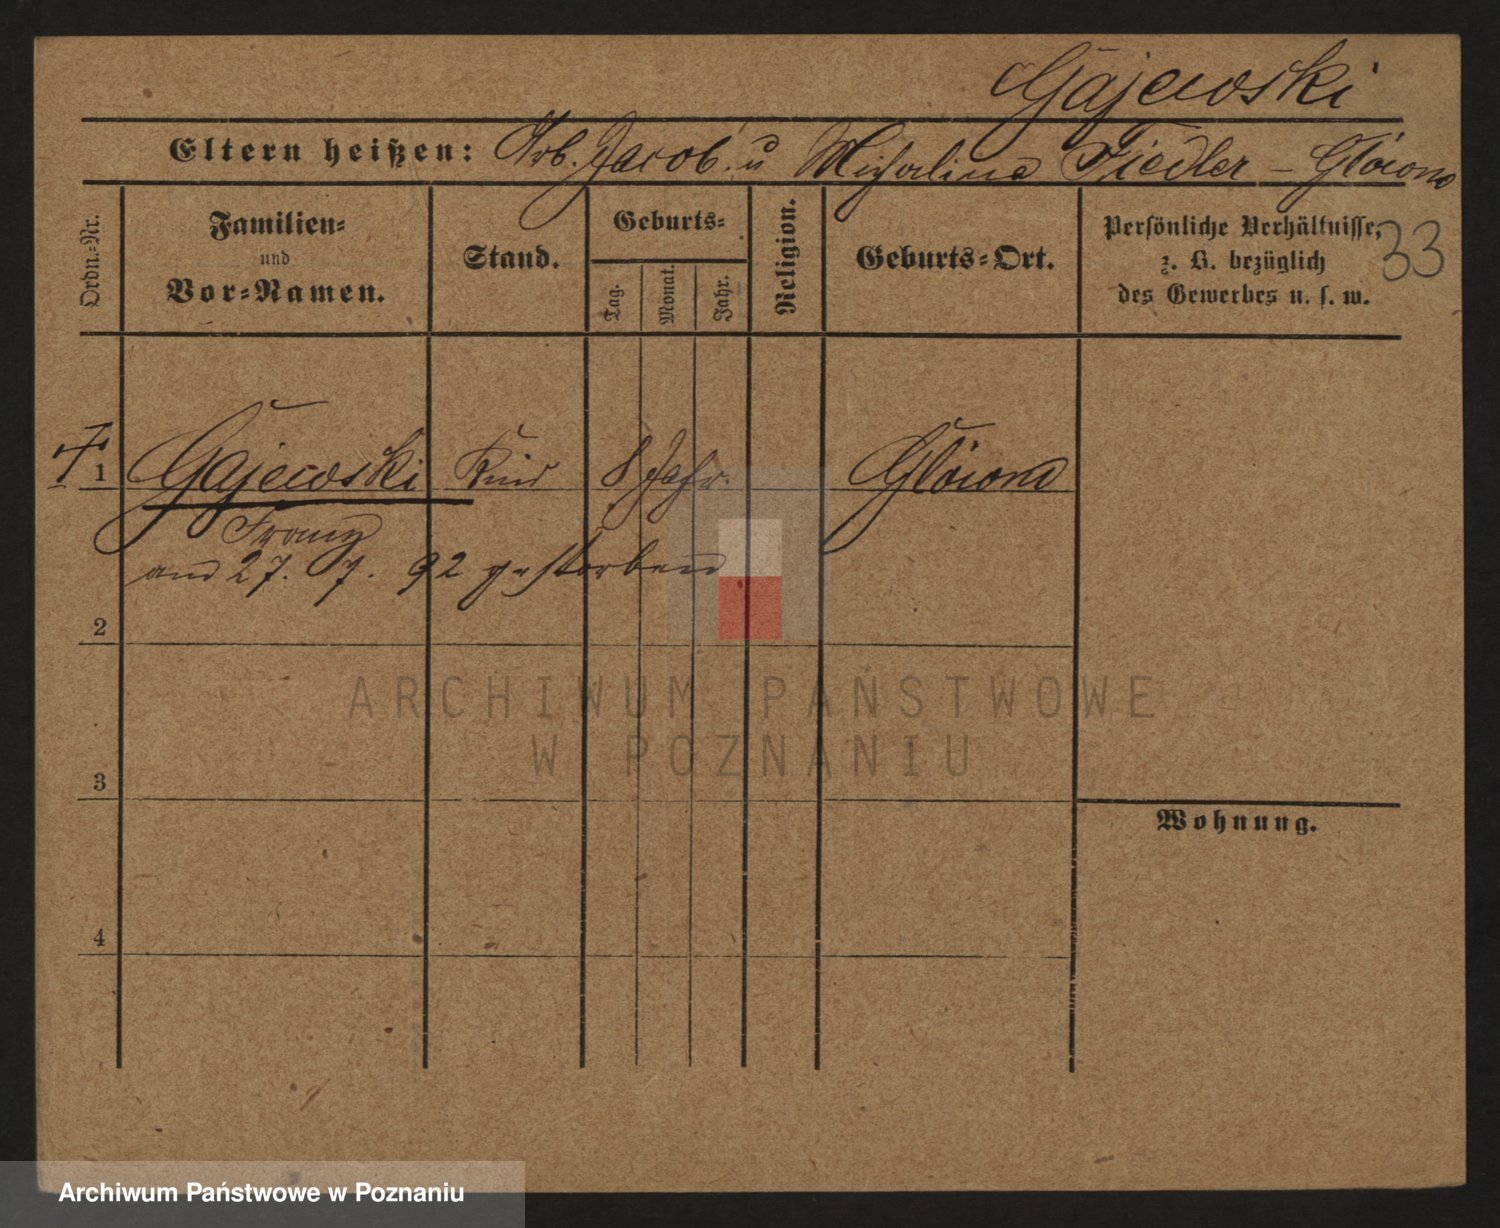 Gajewski
Eltern heißen: Arb. Jacob u Michalina Fiedler – Główno
Ordn.-Nr.
Familien-
und
Vor-Namen.
Stand.
Geburts-
Tag.
Monat.
Jahr.
Religion.
Geburts-Ort.
Persönliche Verhältnisse,
z. B. bezüglich
des Gewerbes u. s. w.
33
1 Gajewski Kind 8 Jahr. Główno
Franz
am 27. 7. 92 gestorben
2
ARCHIWUM PAŃSTWOWE
W POZNANIU
3
Wohnung.
4
Archiwum Państwowe w Poznaniu